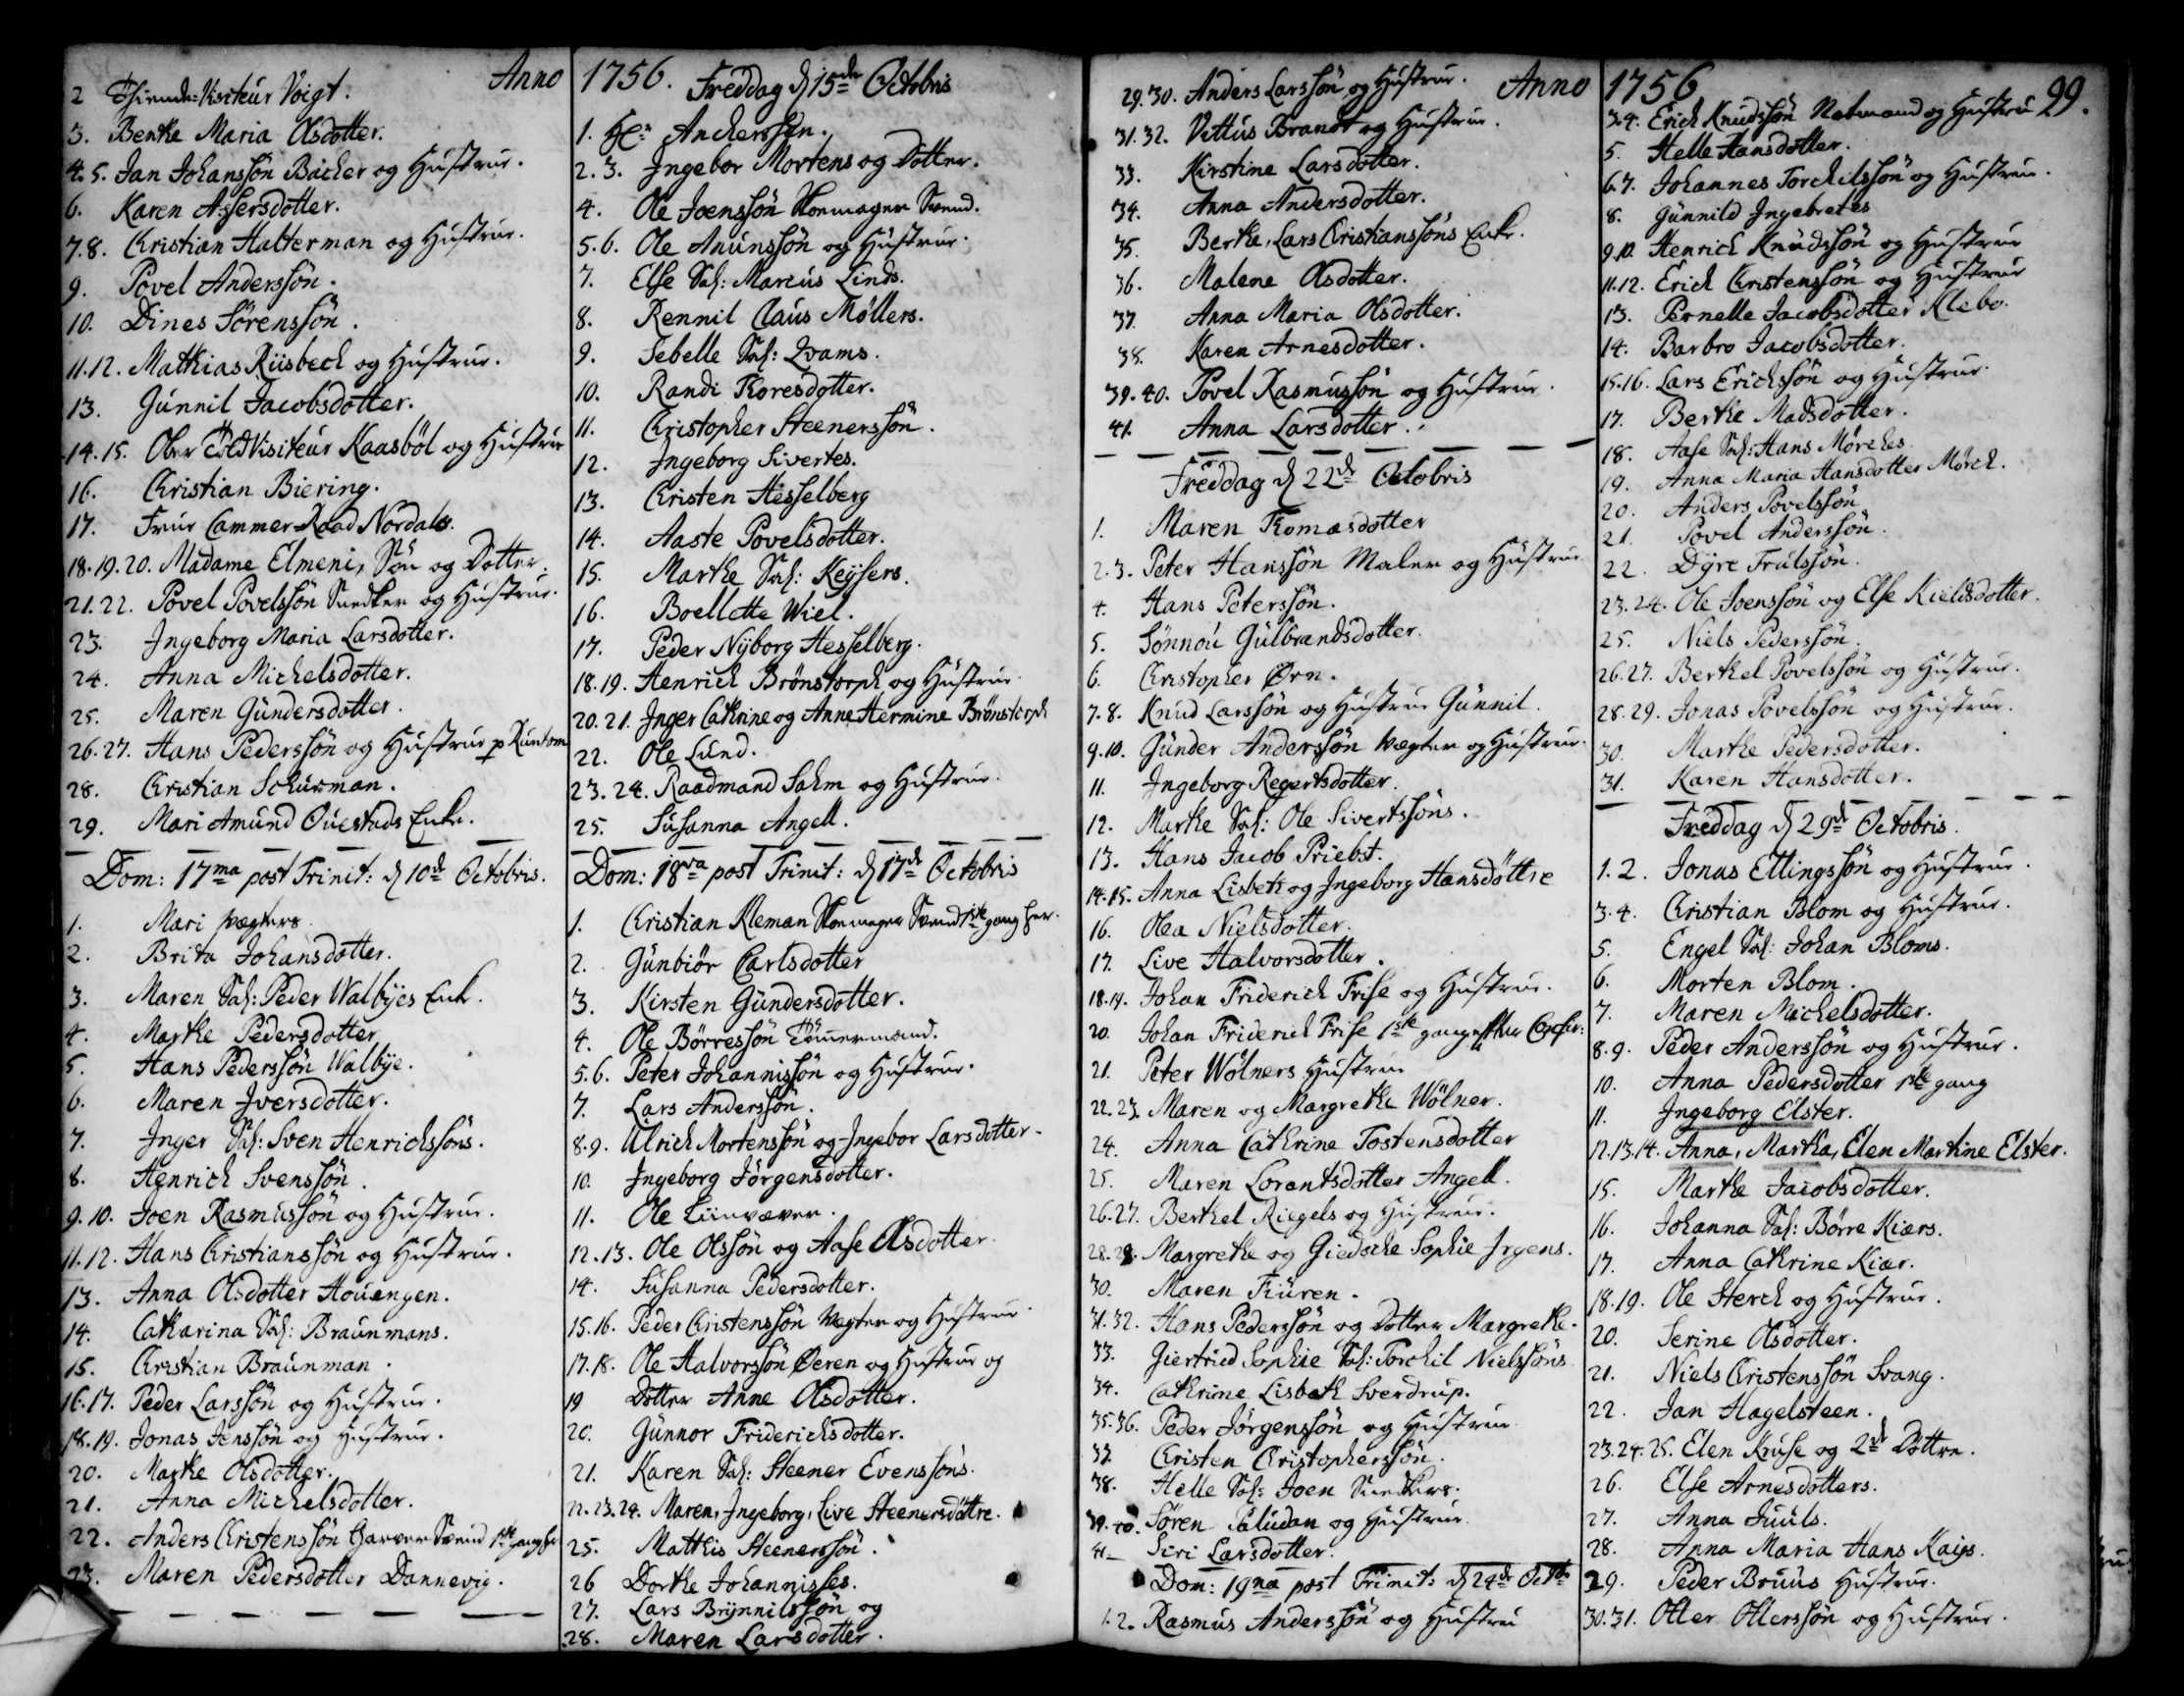 Anno
2 Visiteur Voigt.
3. Benthe Maria Olsdotter.
4. 5. Jan Johanssön Bacher og Hustrue.
6. Karen Assersdotter.
7. 8. Christian Halterman og Hustrue.
9. Povel Anderssön.
10. Dines Sörenssön.
11. 12. Mathias Riisbech og Hustrue.
13. Gunnil Jacobsdotter.
14. 15. Ober Told Visiteur Kaasböl og Hustrue
16. Christian Biering.
17. Frue Cammer-Raad Nordals.
18. 19. 20. Madame Elmeni, Sön og Dotter.
21. 22. Povel Povelssön Snedker og Hustrue.
23. Ingeborg Maria Larsdotter.
24. Anna Michelsdotter.
25. Maren Gundersdotter.
26. 27. Hans Pederssön og Hustrue
28. Christian Schurman.
29. Mari Amund Ouestads Enke.
Dom: 17ma post Trinit: d 10de Octobris.
1. Mari Vægters.
2. Brita Johansdotter.
3. Maren Sal: Peder Walbyes Enke.
4. Marthe Pedersdotter
5. Hans Pederssön Walbye.
6. Maren Iversdotter.
7. Inger Sal: Sven Henrichssöns.
8. Henrich Svenssön.
9. 10. Joen Rasmussön og Hustrue.
11. 12. Hans Christianssön og Hustrue.
13. Anna Olsdotter Houengen.
14. Catharina Sal: Braunmans.
15. Christian Braunman.
16. 17. Peder Larssön og Hustrue.
18. 19. Jonas Jenssön og Hustrue.
20. Marthe Olsdotter.
21. Anna Michelsdotter.
22. Anders Christenssön Garver Svend 1ste gang
23. Maren Pedersdotter Dannevig.
1756. Freddag d 15de Octobris
1. Hr. Anckerssen.
2. 3. Ingebor Mortens og Dotter.
4. Ole Joenssön Skomager Svend.
5. 6. Ole Anunssön og Hustrue.
7. Else Sal: Marcus Linds.
8. Rennil Claus Møllers.
9. Sebelle Sal: Qvams.
10. Randi Thoresdotter.
11. Christopher Steenerssön.
12. Ingeborg Sivertes.
13. Christen Hesselberg
14. Aaste Povelsdotter.
15. Marthe Sal: Keysers.
16. Boellette Wiel.
17. Peder Nyborg Hesselberg.
18. 19. Henrich Brönstorph og Hustrue.
20. 21. Inger Cathrine og Anne Hermine Brönstorph
22. Ole Lund.
23. 24. Raadmand Sahm og Hustrue.
25. Susanna Angell.
Dom: 18va post Trinit: d 17de Octobris
1. Christian Kleman Skomager Svend 1ste gang her.
2. Gunbiör Carlsdotter
3. Kirsten Gundersdotter.
4. Ole Börressön Tömmermand.
5. 6. Peter Johannissön og Hustrue.
7. Lars Anderssön.
8. 9. Ulrich Mortenssøn og Ingebor Larsdotter.
10. Ingeborg Jörgensdotter.
11. Ole Liinvæver.
12. 13. Ole Olssön og Aase Olsdotter.
14. Susanna Pedersdotter.
15. 16. Peder Christenssön Vegter og Hustrue.
17. 18. Ole Halvorssön Øeren og Hustrue og
19 Dotter Anne Olsdotter.
20. Gunnor Friderichsdotter.
21. Karen Sal: Steener Evenssöns.
22. 23. 24. Maren, Ingeborg, Live Steenersdöttre.
25. Mathis Steenerssön.
26 Dorthe Johannisses.
27. Lars Brynnilssön og
28. Maren Larsdotter.
Anno
29. 30. Anders Larssön og Hustrue.
31. 32. Vittus Brandt og Hustrue.
33. Kirstine Larsdotter.
34. Anna Andersdotter.
35. Berthe, Lars Christianssöns Enke.
36. Malene Olsdotter.
37. Anna Maria Olsdotter.
38. Karen Arnesdotter.
39. 40. Povel Rasmussön og Hustrue.
41. Anna Larsdotter.
Freddag d 22de Octobris
1. Maren Thomasdotter
2. 3. Peter Hanssön Maler og Hustrue
4. Hans Peterssön.
5. Sönnou Gulbrandsdotter.
6. Christopher Ørn.
7. 8. Knud Larssön og Hustrue Gunnil.
9. 10. Gunder Anderssön Vægter og Hustrue.
11. Ingeborg Regertsdotter.
12. Marthe Sal: Ole Sivertssöns.
13. Hans Jacob Priebst.
14. 15. Anna Lisbeth og Ingeborg Hansdöttre
16. Olea Nielsdotter.
17. Live Halvorsdotter.
18. 19. Johan Friderich Frise og Hustrue.
20. Johan Friderich Frise 1ste gang
21. Peter Wölners Hustrue
22. 23. Maren og Margrethe Wölner.
24. Anna Cathrine Tostensdotter
25. Maren Lorentsdotter Angell.
26. 27. Berthel Riegels og Hustrue.
28. 29. Margrethe og Giedsche Sophie Irgens.
30. Maren Fiuren.
31. 32. Hans Pederssön og Dotter Margrethe.
33. Giertrud Sophie Sal: Torchil Nielssöns
34. Cathrine Lisbeth Sverdrup.
35. 36. Peder Jörgenssön og Hustrue
37. Christen Christopherssön.
38. Helle Sal: Joen Snedkers.
39. 40. Sören Paludan og Hustrue.
41. Siri Larsdotter.
Dom: 19na post Trinit: d 24de Octbr
1. 2. Rasmus Anderssön og Hustrue
1756 99.
3. 4. Erich Knudssön og Hustrue
5. Helle Hansdotter.
6. 7. Johannes Torchilssön og Hustrue.
8. Gunnild Ingebretes
9. 10. Henrich Knudssön og Hustrue
11. 12. Erich Christenssön og Hustrue
13. Pernelle Jacobsdotter Klebo.
14. Barbro Jacobsdotter.
15. 16. Lars Erichssön og Hustrue.
17. Berthe Madsdotter.
18. Aase Sal: Hans Mörches.
19. Anna Maria Hansdotter Mörch.
20. Anders Povelssön
21. Povel Anderssön.
22. Dyre Trulssön.
23. 24. Ole Joenssön og Else Kieldsdotter.
25. Niels Pederssön.
26. 27. Berthel Povelssön og Hustrue.
28. 29. Jonas Povelssön og Hustrue.
30. Marthe Pedersdotter.
31. Karen Hansdotter.
Freddag d 29de Octobris.
1. 2. Jonas Ellingssön og Hustrue.
3. 4. Christian Blom og Hustrue.
5. Engel Sal: Johan Bloms.
6. Morten Blom.
7. Maren Michelsdotter.
8. 9. Peder Anderssön og Hustrue.
10. Anna Pedersdotter 1ste gang
11. Ingeborg Elster.
12. 13. 14. Anna, Martha, Elen Martine Elster.
15. Marthe Jacobsdotter.
16. Johanna Sal: Börre Kiærs.
17. Anna Cathrine Kiær.
18. 19. Ole Sterch og Hustrue.
20. Serine Olsdotter.
21. Niels Christenssön Svang.
22. Jan Hagelsteen.
23. 24. 25. Elen Kruse og 2de Döttre.
26. Else Arnesdotters.
27. Anna Juuls.
28. Anna Maria Hans Kaijs.
29. Peder Bruus Hustrue.
30. 31. Otter Otterssön og Hustrue.